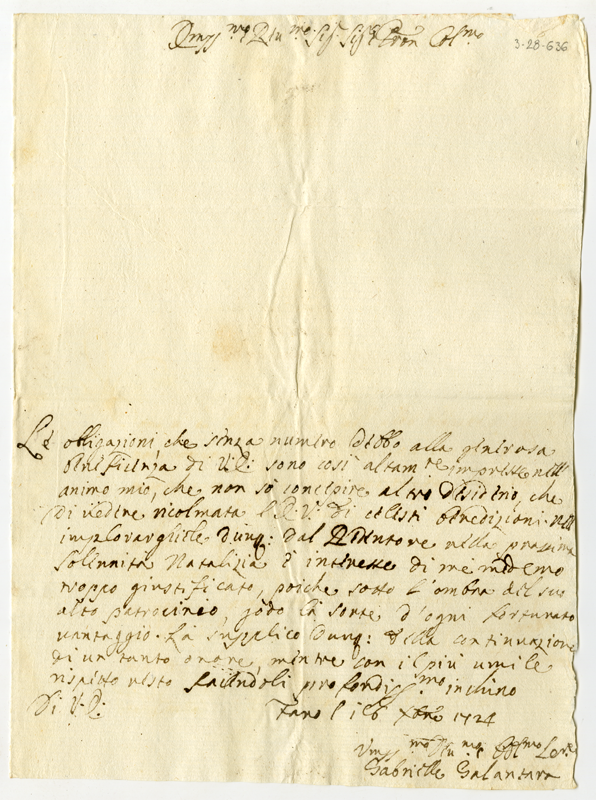 3-28-636
Le obligazioni, che senza numero debbo alla generosa
beneficenza di V.E: sono così altam.te impresse nell'
animo mio, che non so concepire altro desiderio, che
di vedere ricolmata l'E.V: di celesti benedizioni. Nell'
implorargliele dunq: dal Redentore nella prossima
solennità Natalizia è interesse di me medemo
troppo giustificato, poiche sotto l'ombra del suo
alto patrocineo, godo la sorte d'ogni fortunato
vantaggio. La supplico dunq: della continuazione
di un tanto onore, mentre con il più umile
rispetto resto facendoli profondiss.mo inchino
Di V.E: Fano li 6 Xbre 1724
Gabrielle Galantara